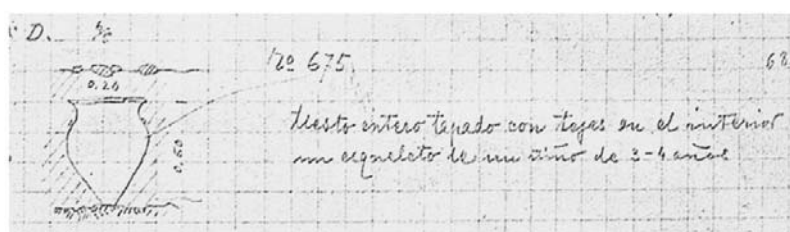 C D.
nº 675
68
0.20
tiesto entero tapado con tejas en el interior
0.60
un esqueleto de un niño de 3-4 años